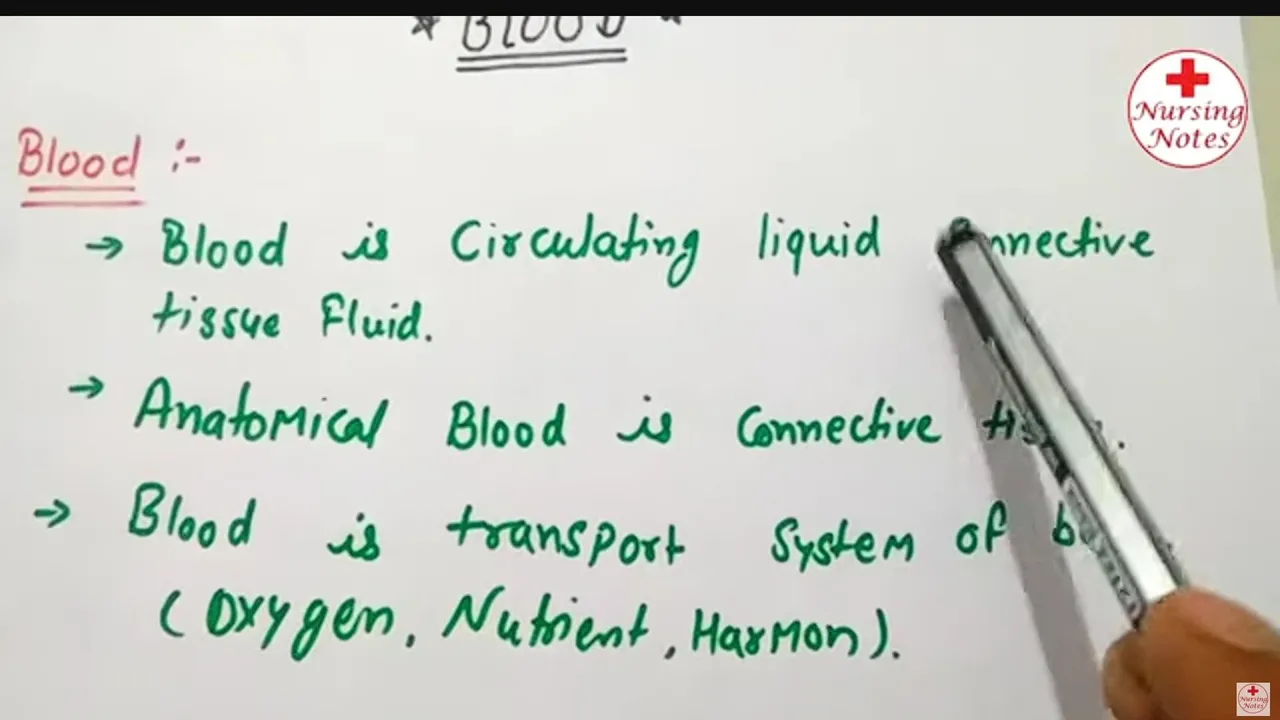 * BLOOD *
Nursing
Notes
Blood :-
→ Blood is Circulating liquid Connective
tissue Fluid.
→ Anatomical Blood is Connective
→ Blood is transport System of
(Oxygen, Nutrient, Harmon).
Nursing
Notes